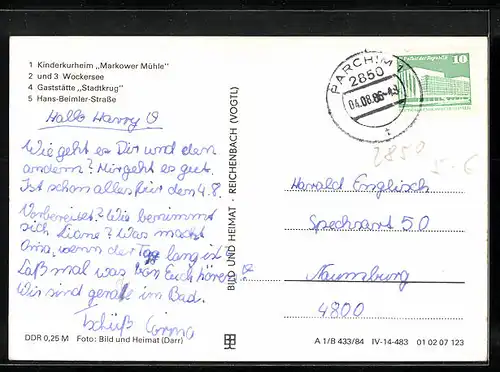 1 Kinderkurheim „Markower Mühle"
2 und 3 Wockersee
4 Gaststätte „Stadtkrug"
5 Hans-Beimler-Straße
Hallo Harry
Wie geht es Dir und den
andern? Mir geht es gut.
Ist schon alles für den 4.8.
Vorbereitet? Wie benimmt
sich Liane? Was macht
Oma, wenn der Tag lang ist
Laß mal was von Euch hören.
Wir sind gerade im Bad.
Tschüß
DDR 0,25 M Foto: Bild und Heimat (Darr)
BILD UND HEIMAT · REICHENBACH (VOGTL)
PARCHIM 1
2850
04.08.86
10
2850
Harald Englisch
Spechsart 50
Naumburg
4800
A 1/B 433/84 IV-14-483 01 02 07 123